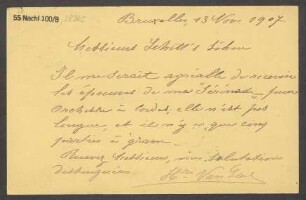 55 Nachl 100/B
Bruxelles, 13 Nov. 1907
Messieurs Schott's Söhne
Il me serait agréable de recevoir
les épreuves de ma Sérénade pour
Orchestre à cordes, elle n'est pas
longue, et il n'y a que cinq
parties à graver.
Recevez Messieurs, mes salutations
distinguées